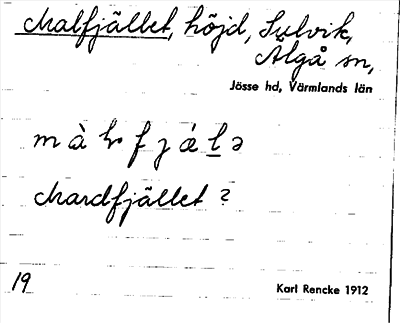 Malfjället, höjd, Sulvik,
Älgå sn,
Jösse hd, Värmlands län
Mardfjället ?
19
Karl Rencke 1912